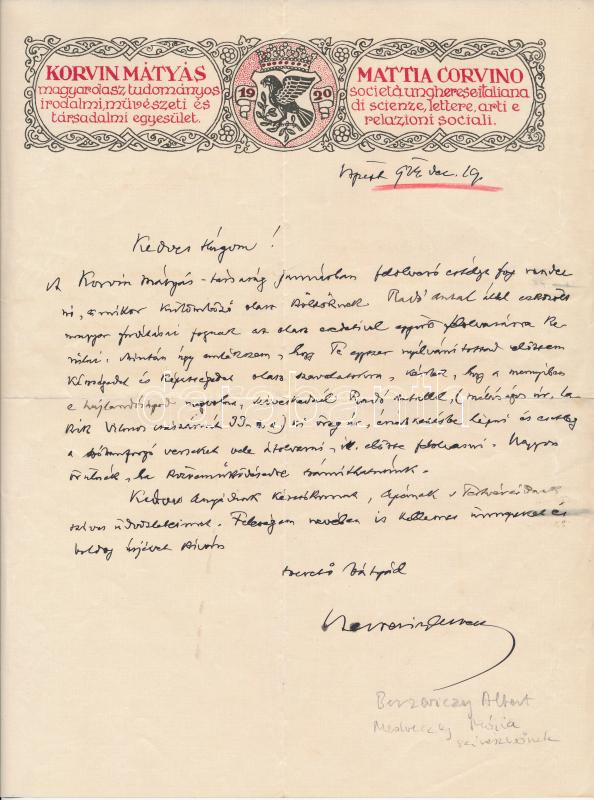 KORVIN MÁTYÁS
magyar olasz tudományos
irodalmi, művészeti és
társadalmi egyesület.
1920
MATTIA CORVINO
società ungherese italiana
di scienze, lettere, arti e
relazioni sociali.
Bpest 924 dec. 19.
Kedves Húgom!
A Korvin Mátyás-társaság januárban felolvasó estélyt fog rendez-
ni, amikor különböző olasz költőknek Radó Antal által eszközölt
magyar fordításai fognak az olasz eredetivel együtt felolvasásra ke-
rülni. Miután úgy emlékszem, hogy Te egyszer nyilvánítottad előttem
készségedet és képességedet olasz szavalatokra, kérlek, hogy a mennyiben
e hajlandóságod megvolna, szíveskednél Radó Antallal,
Vilmos császár út érintkezésbe lépni és esetleg
a szóban forgó verseket vele átolvasni, ill. előtte felolvasni. Nagyon
örülnék, ha közreműködésedre számíthatnánk.
Kedves Anyádnak kézcsókomat, Apádnak s Testvéreidnek
szíves üdvözletemet. Feleségem nevében is kellemes ünnepeket és
boldog újévet kíván
szerető bátyád
Berzeviczy Albert
Medveczky Mária
színésznőnek